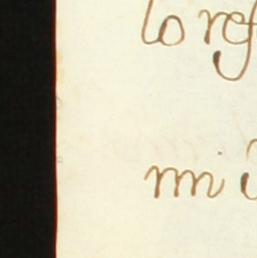 lo ref
mi